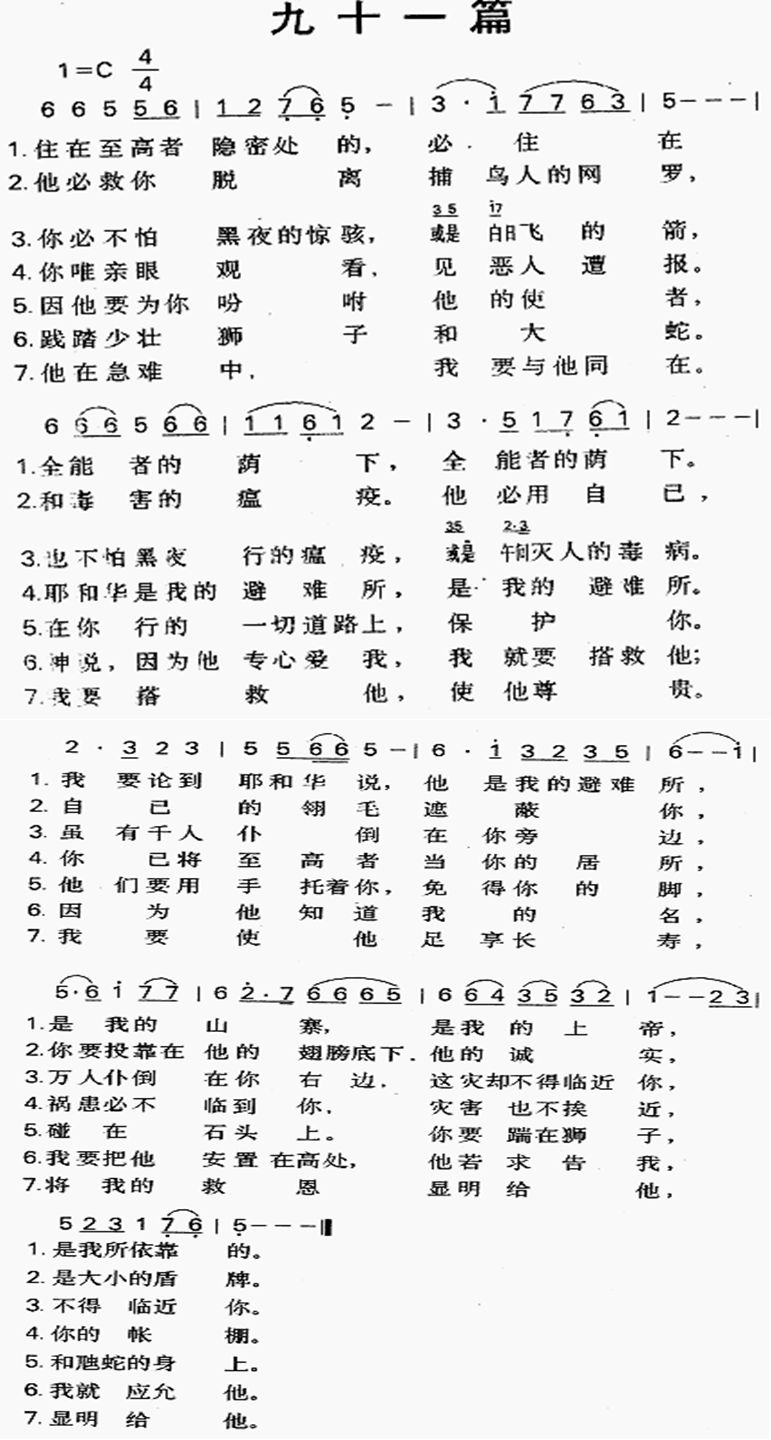 九十一篇
1=C 4/4
6 6 5 5 6 | 1 2 7 6 5 - | 3 · i 7 7 6 3 | 5 - - - |
1.住在至高者 隐密处的, 必 . 住 在
2.他必救你 脱 离 捕鸟人的网 罗,
3 5 i7
3.你必不怕 黑夜的惊骇, 或是 白日飞的 箭,
4.你唯亲眼 观 看, 见恶人遭 报。
5.因他要为你 吩 咐 他的使 者,
6.践踏少壮 狮 子 和 大 蛇。
7.他在急难 中, 我 要与他同 在。
6 6 6 5 6 6 | 1 1 6 1 2 - | 3 · 5 1 7 6 1 | 2 - - - |
1.全能 者的 荫 下, 全 能者的荫 下。
2.和毒 害的 瘟 疫。 他 必用自 已,
35 2·3
3.也不怕黑夜 行的瘟 疫, 或是 午间灭人的毒 病。
4.耶和华是我的 避难 所, 是·我的 避难 所。
5.在你 行的 一切道路上, 保 护 你。
6.神说,因为他 专心爱 我, 我 就要搭救 他;
7.我要 搭 救 他, 使 他尊 贵。
2 · 3 2 3 | 5 5 6 6 5 - | 6 · i 3 2 3 5 | 6 - - i |
1. 我 要论到 耶和华 说, 他 是我的避难 所,
2. 自 已 的翎毛 遮 蔽 你,
3. 虽 有千人 仆 倒 在 你旁 边,
4. 你 已将 至高者 当 你的居 所,
5. 他 们要用 手托着你, 免 得你的 脚,
6. 因 为 他知道 我 的 名,
7. 我 要 使 他 足 享长 寿,
5·6 i 7 7 | 6 2·7 6 6 6 5 | 6 6 4 3 5 3 2 | 1 - - 2 3 |
1.是 我的 山 寨, 是我的上 帝,
2.你要投靠在 他的 翅膀底下. 他的诚 实,
3.万人仆倒 在你 右边, 这灾却不得临近 你,
4.祸患必不 临到 你, 灾害也不挨 近,
5.碰 在 石头 上。 你要踹在狮 子,
6.我要把他 安置在高处, 他若求告 我,
7.将 我的 救 恩 显明给 他,
5 2 3 1 7 6 | 5 - - - ‖
1. 是我所依靠 的。
2. 是大小的盾 牌。
3. 不得 临近 你。
4. 你的 帐 棚。
5. 和虺蛇的身 上。
6. 我就 应允 他。
7. 显明 给 他。